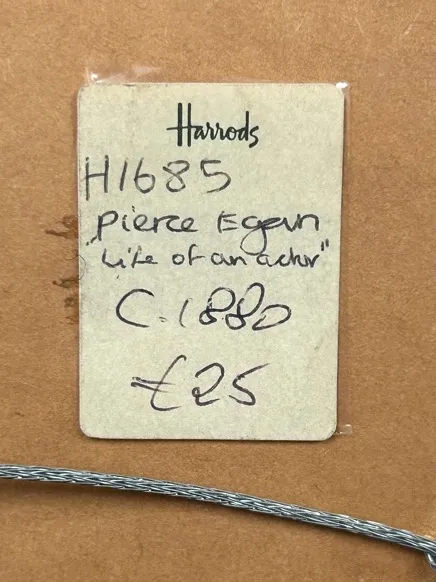 Harrods
H1685
Pierce Egan
"Life of an actor"
C.1880
£25